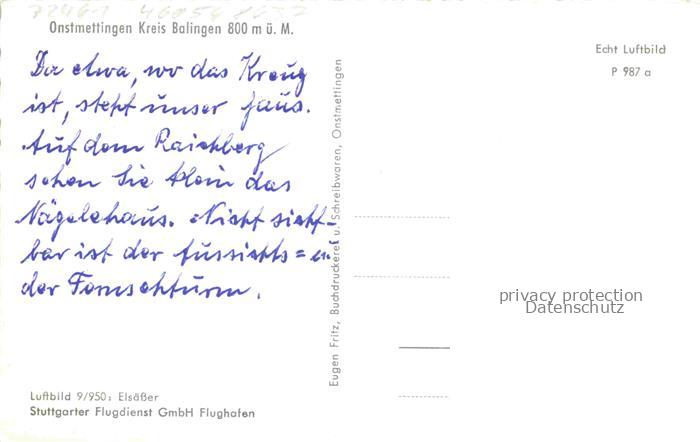 72461 46054 8677
Onstmettingen Kreis Balingen 800 m ü. M.
Echt Luftbild
P 987 a
Da etwa, wo das Kreuz
ist, steht unser Haus.
Auf dem Raichberg
sehen Sie klein das
Nägelehaus. Nicht sicht-
bar ist der Aussichts= u.
der Fernsehturm.
Eugen Fritz, Buchdruckerei u. Schreibwaren, Onstmettingen
privacy protection
Datenschutz
Luftbild 9/950: Elsäßer
Stuttgarter Flugdienst GmbH Flughafen